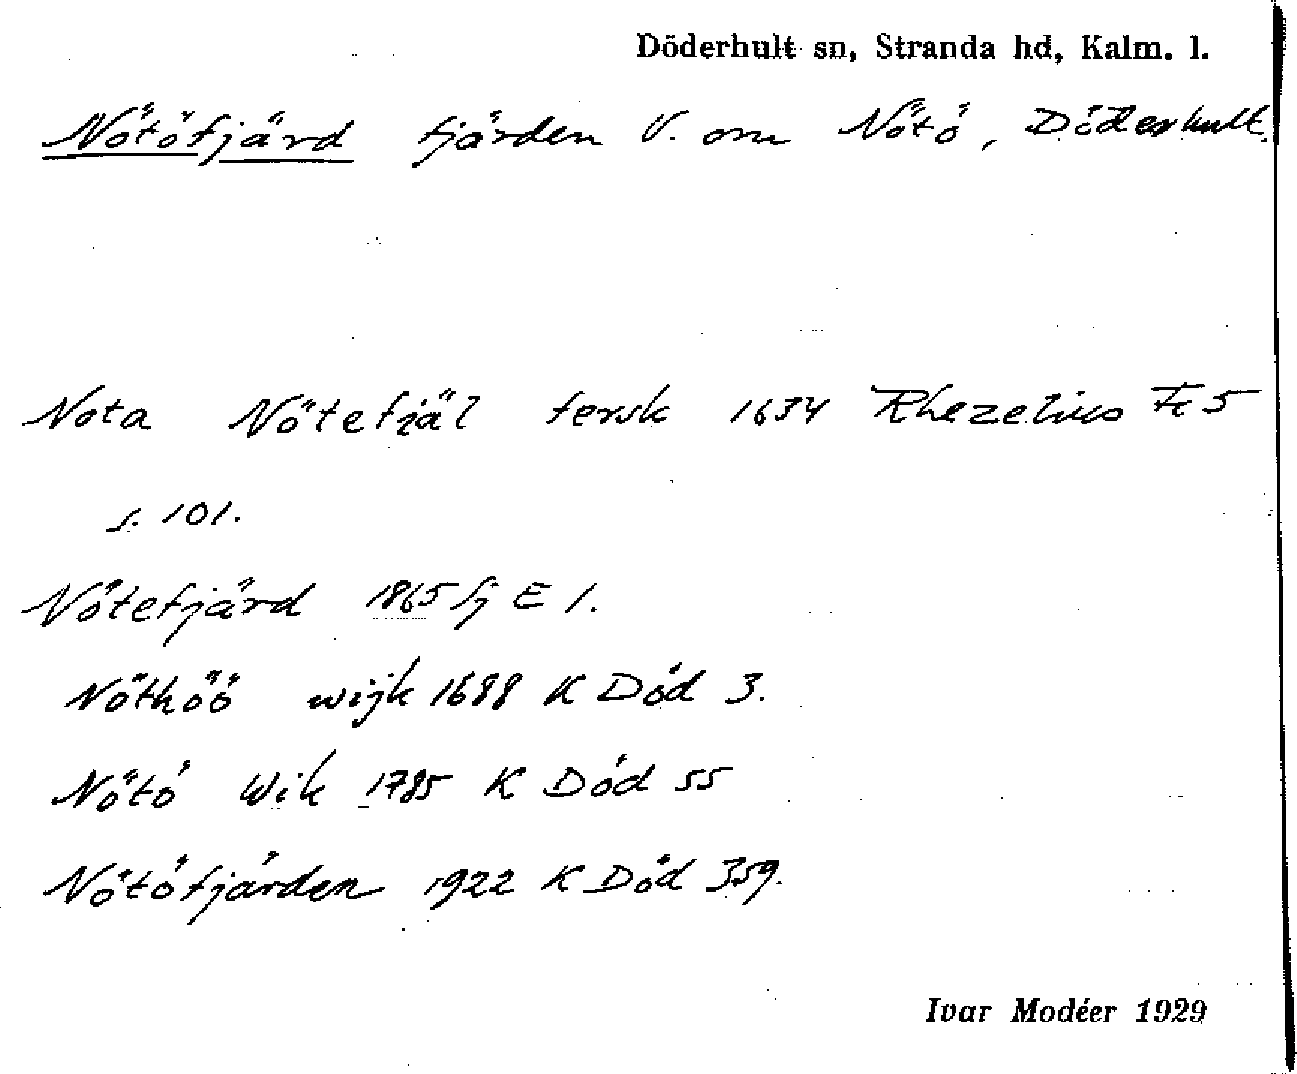 Döderhult sn, Stranda hd, Kalm. l.
Nötöfjärd fjärden V. om Nötö, Döderhult.
Nota Nötefjäl fersk 1634 Rhezelius Fc 5
s. 101.
Nötefjärd 1865 fj E 1.
Nöthöö wijk 1688 K Död 3.
Nötö Wik 1785 K Död 55
Nötöfjärden 1922 K Död 359.
Ivar Modéer 1929